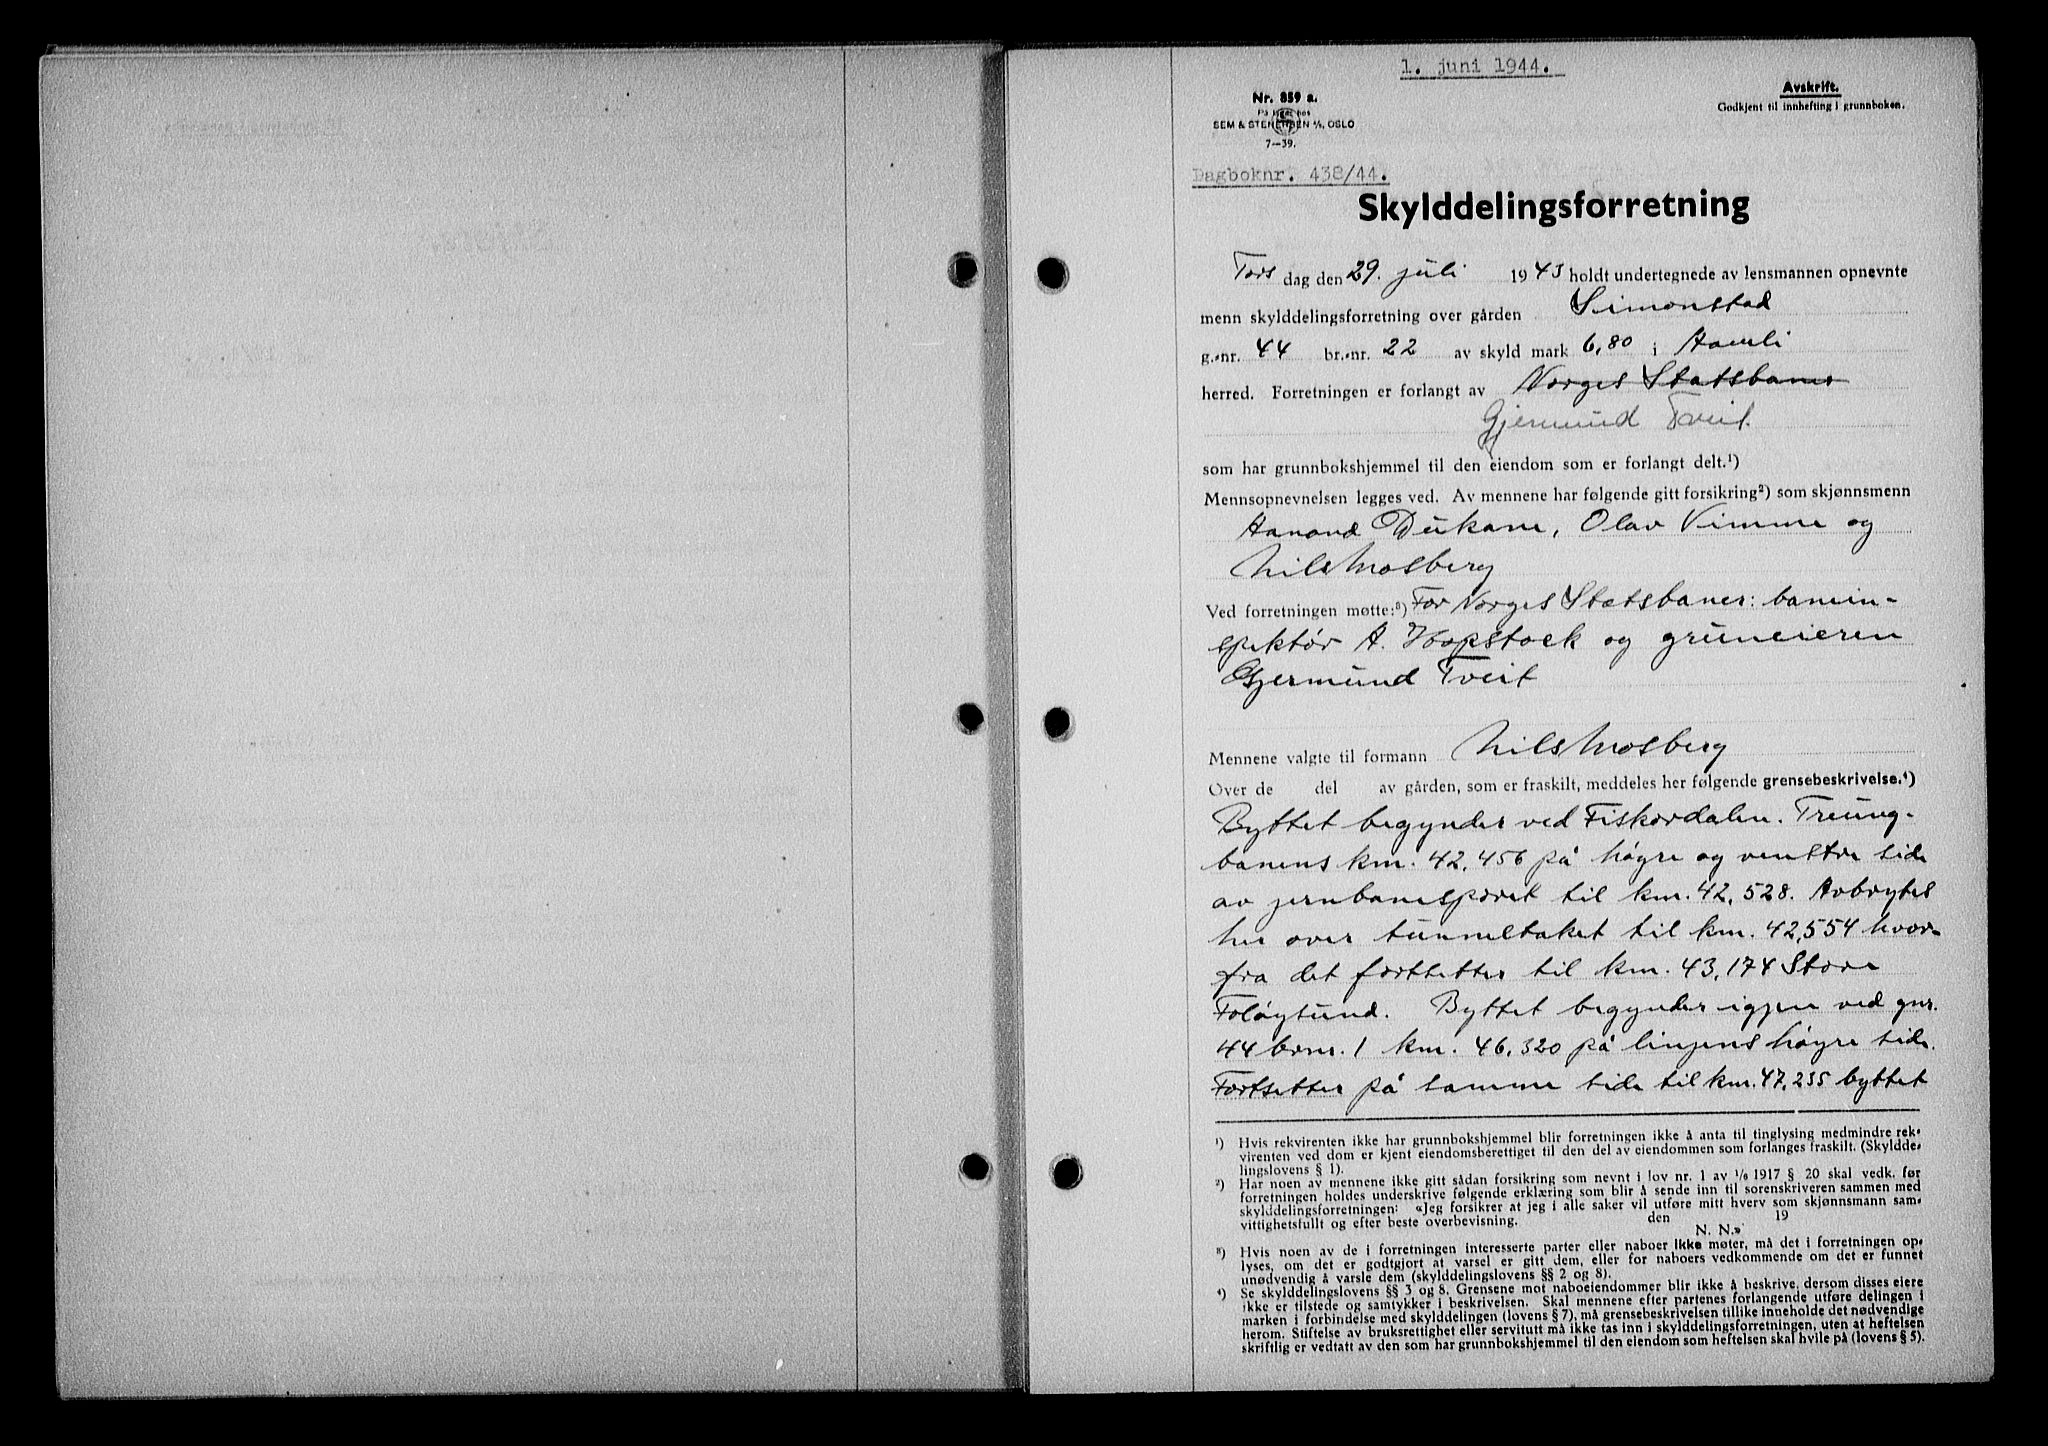 1. juni 1944.
Avskrift.
Godkjent til innhefting i grunnboken.
Nr. 859 a.
På lager hos
SEM & STENERSEN A/S, OSLO
7-39.
Dagboknr. 438/44.
Skylddelingsforretning
Tors dag den 29. juli 1943 holdt undertegnede av lensmannen opnevnte
menn skylddelingsforretning over gården Simonstad
g.-nr. 44 br.-nr. 22 av skyld mark 6,80 i Aamli
herred. Forretningen er forlangt av Norges Statsbaner
Gjermund Tveit.
som har grunnbokshjemmel til den eiendom som er forlangt delt.¹)
Mennsopnevnelsen legges ved. Av mennene har følgende gitt forsikring²) som skjønnsmenn
Aanond Dukane, Olav Vimme og
Nils Mosberg
Ved forretningen møtte:³) For Norges Statsbaner: banein-
spektør A. Hopstock og gruneieren
Gjermund Tveit
Mennene valgte til formann Nils Mosberg
Over de del av gården, som er fraskilt, meddeles her følgende grensebeskrivelse.⁴)
Byttet begynder ved Fiskerdalen. Treung-
banens km. 42,456 på høgre og venstre side
av jernbanesporet til km. 42,528. Avbrytes
her over tunneltaket til km. 42,554 hvor-
fra det fortsetter til km. 43,174 Store
Foløysund. Byttet begynder igjen ved gnr.
44 brnr. 1 km. 46,320 på linjens høgre side.
Fortsetter på samme side til km. 47,235 byttet
¹) Hvis rekvirenten ikke har grunnbokshjemmel blir forretningen ikke å anta til tinglysing medmindre rek-
virenten ved dom er kjent eiendomsberettiget til den del av eiendommen som forlanges fraskilt. (Skyldde-
lingslovens § 1).
²) Har noen av mennene ikke gitt sådan forsikring som nevnt i lov nr. 1 av 1/6 1917 § 20 skal vedk. før
forretningen holdes underskrive følgende erklæring som blir å sende inn til sorenskriveren sammen med
skylddelingsforretningen: «Jeg forsikrer at jeg i alle saker vil utføre mitt hverv som skjønnsmann sam-
vittighetsfullt og efter beste overbevisning. den 19
N. N.»
³) Hvis noen av de i forretningen interesserte parter eller naboer ikke møter, må det i forretningen op-
lyses, om det er godtgjort at varsel er gitt dem, eller for naboers vedkommende om det er funnet
unødvendig å varsle dem (skylddelingslovens §§ 2 og 8).
⁴) Se skylddelingslovens §§ 3 og 8. Grensene mot naboeiendommer blir ikke å beskrive, dersom disses eiere
ikke er tilstede og samtykker i beskrivelsen. Skal mennene efter partenes forlangende utføre delingen i
marken i forbindelse med skylddelingen (lovens § 7), må grensebeskrivelsen tillike inneholde det nødvendige
herom. Stiftelse av bruksrettighet eller servitutt må ikke tas inn i skylddelingsforretningen, uten at heftelsen
skriftlig er vedtatt av den som har grunnbokshjemmel til den eiendom som heftelsen skal hvile på (lovens § 5).